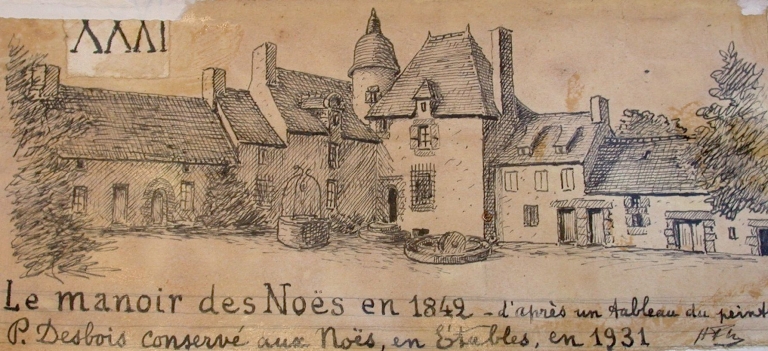 XXXI
Le manoir des Noës en 1842 - d'après un tableau du peint
P. Desbois conservé aux Noës, en Étables, en 1931